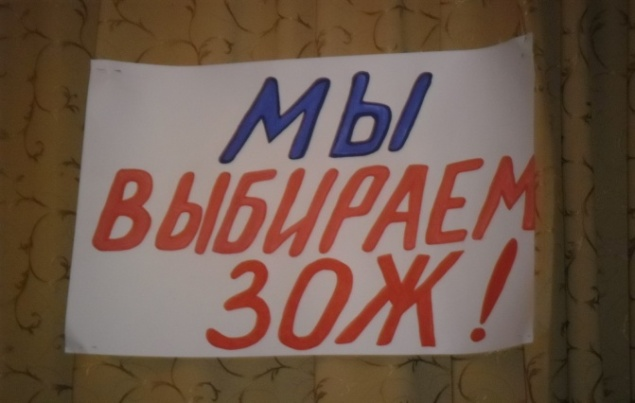 МЫ
ВЫБИРАЕМ
ЗОЖ!